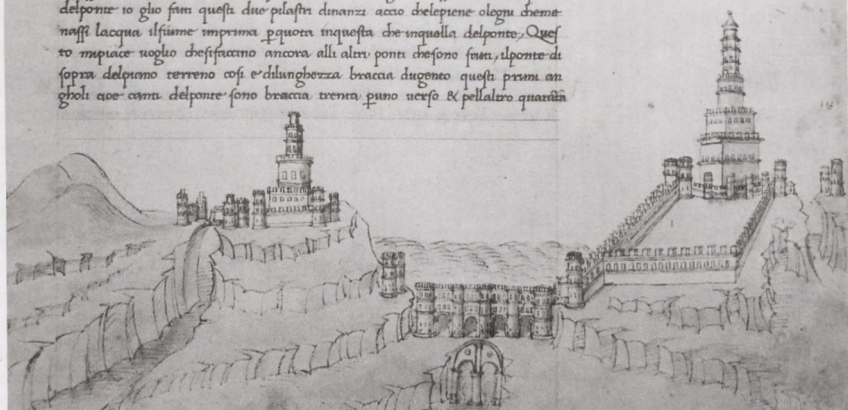 delponte io gho fatti questi due pilastri dinanzi accio chelepiene olegni cheme
nassi lacqua ilfiume imprima ꝑquota inquesta che inquella delponte, Ques
to mipiace uoglio chesifaccino ancora alli altri ponti chesono fatti, ilponte di
sopra delpiano terreno cosi e dilunghezza braccia dugento questi primi an
gholi cioe canti delponte sono braccia trenta ꝑuno uerso & pellaltro quaranta